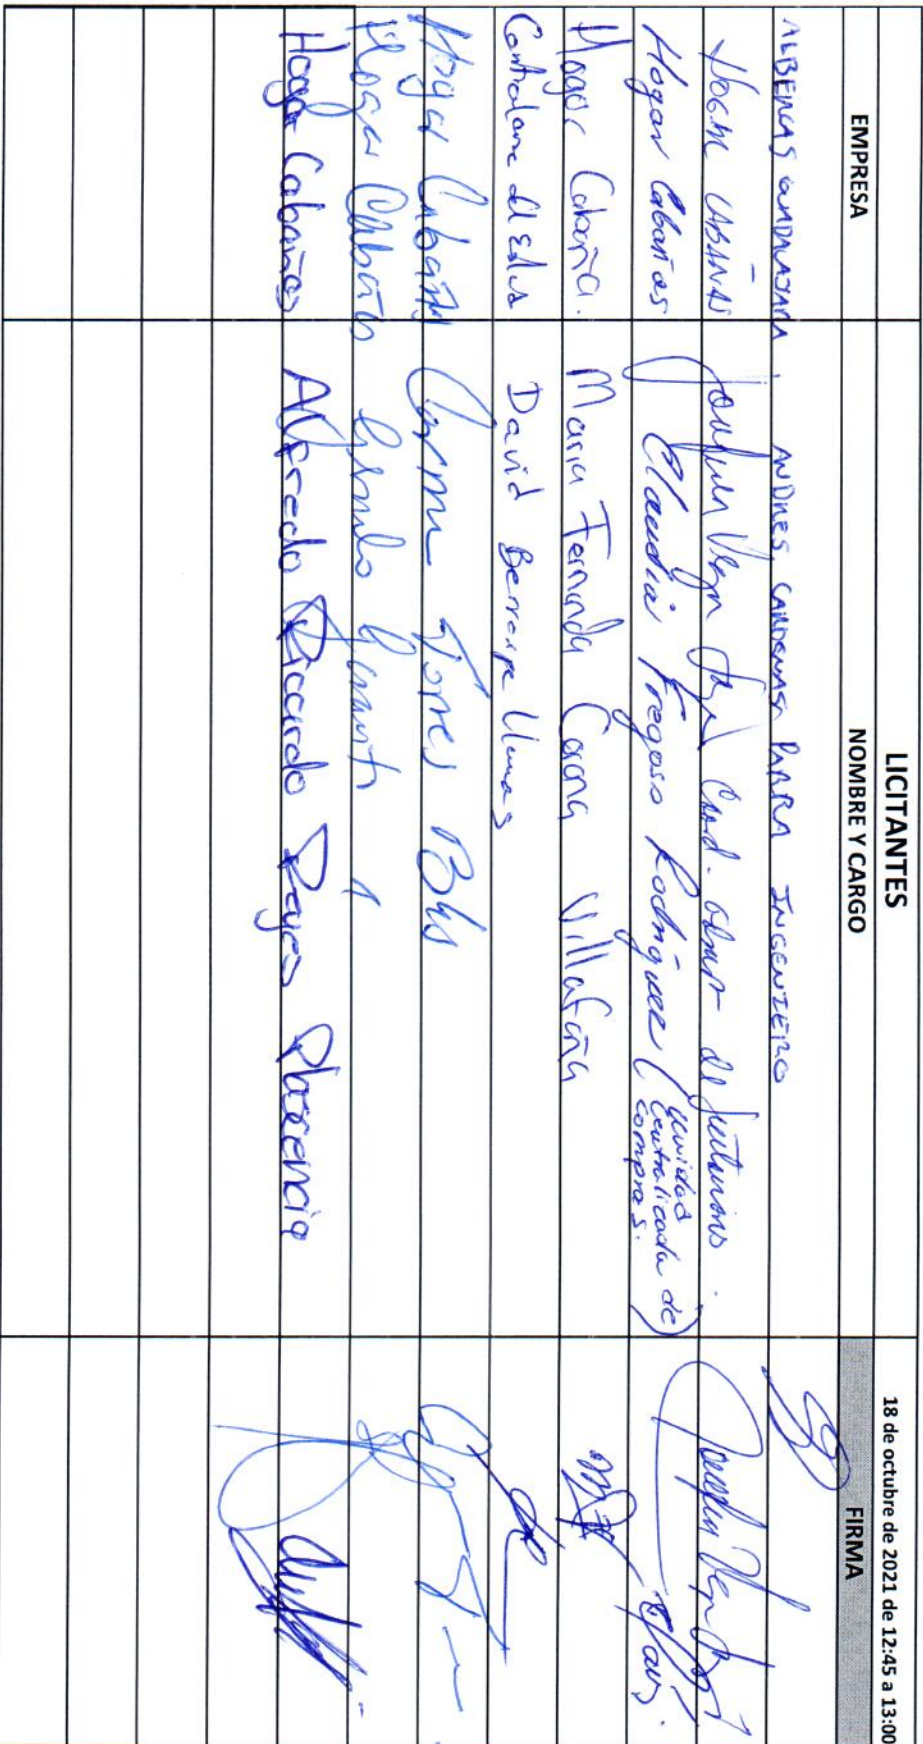 LICITANTES
18 de octubre de 2021 de 12:45 a 13:00
EMPRESA NOMBRE Y CARGO FIRMA
ALBERCAS GUADALAJARA ANDRES CARDENAS PARRA INGENIERO
HOGAR CABAÑAS Joaquin Vega
Hogar Cabañas Claudia Fregoso Rodríguez (Unidad Centralizada de Compras.)
Hogar Cabaña. Maria Fernanda Gaona Villafaña
Contraloria del Estado David Berrospe Llamas
Hogar Cabañas Torres
Hogar Cabañas
Hogar Cabañas Alfredo Ricardo Reyes Plascencia